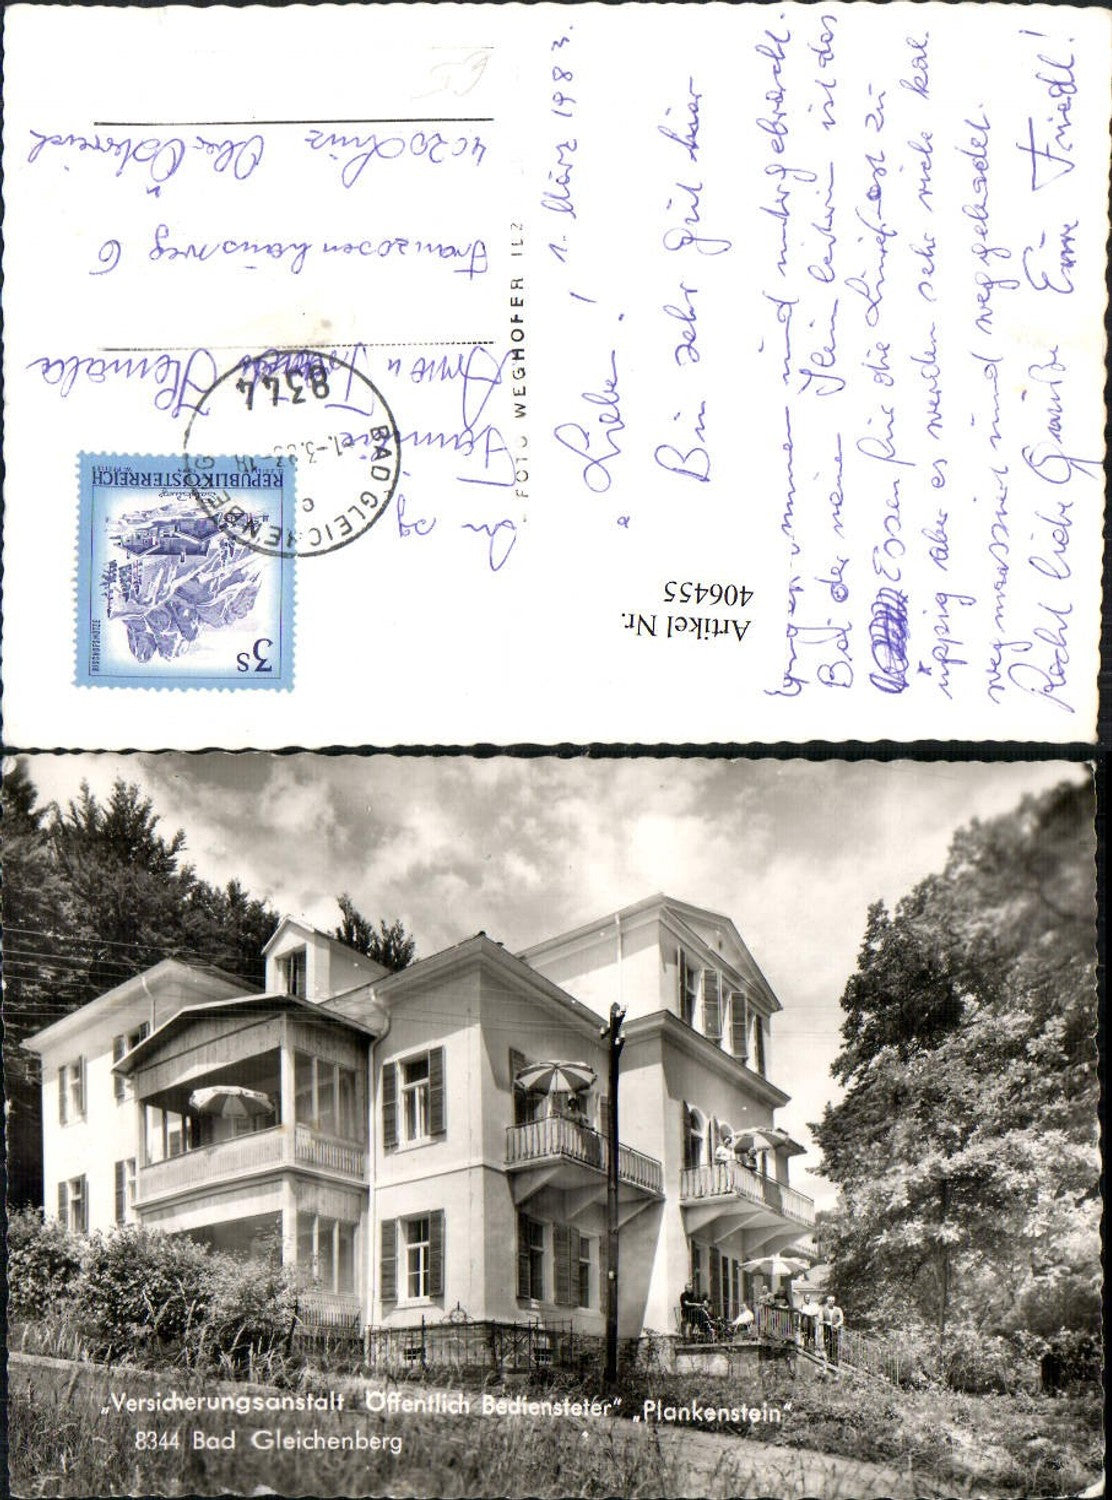 1. März 1983.
Liebe !
Bin sehr gut hier
angekommen und untergebracht.
Bad der meine Kleinkabine ist das
Essen für die Linie fast zu
üppig aber es werden sehr viele kal.
wegmassiert und weggebadet.
Recht liebe Grüße Eure Friedl!
An
sg Familie
Anne u
Franzosenhausweg 6
4020 Linz Oberösterreich
FOTO WEGHOFER ILZ
REPUBLIK ÖSTERREICH
BISCHOFSMÜTZE
3S
8344
BAD GLEICHENBERG
Artikel Nr.
406455
„Versicherungsanstalt Öffentlich Bediensteter" „Plankenstein"
8344 Bad Gleichenberg